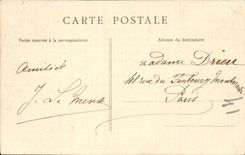 CARTE POSTALE
Partie réservée à la correspondance
Adresse du destinataire
Madame Drieu
rue du Faubourg
Paris
Amitiés
J. Le